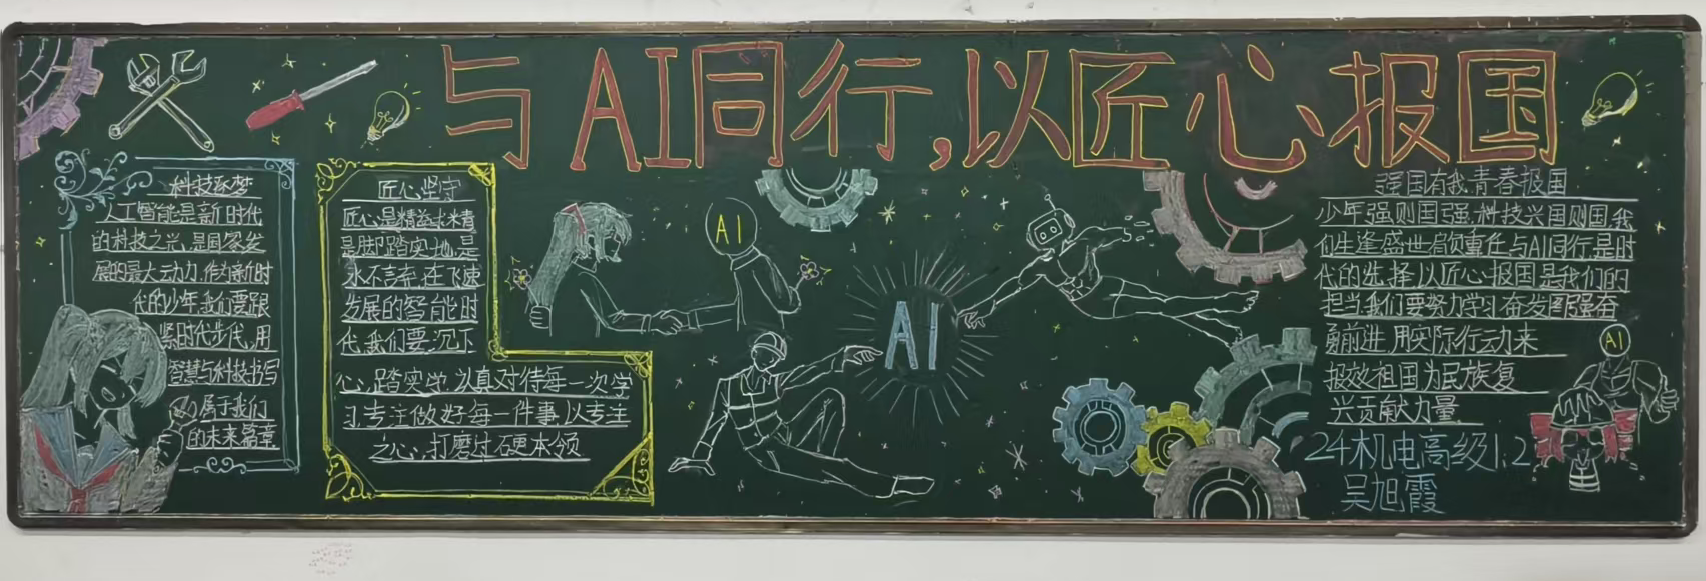 与AI同行,以匠心报国
科技逐梦
人工智能是新时代
的科技之兴,是国家发
展的最大动力,作为新时
代的少年,我们要跟
紧时代步伐,用
智慧与科技书写
属于我们
的未来篇章
匠心坚守
匠心是精益求精
是脚踏实地,是
永不言弃,在飞速
发展的智能时
代,我们要沉下
心,踏实学,认真对待每一次学
习,专注做好每一件事,以专注
之心,打磨过硬本领
AI
AI
强国有我,青春报国
少年强则国强,科技兴国则国我
们生逢盛世肩负重任与AI同行,是时
代的选择,以匠心报国是我们的
担当我们要努力学习,奋发图强奋
勇前进,用实际行动来
报效祖国为民族复
兴贡献力量
AI
24机电高级1,2
吴旭霞